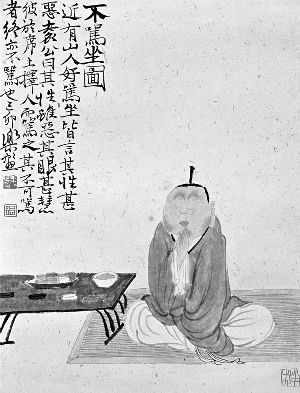 不罵坐圖
近有山人好罵坐皆言其性甚
惡袁公曰其性雖惡其眼甚慧
彼於席上擇人而罵之其不可罵
者終亦不罵也己卯